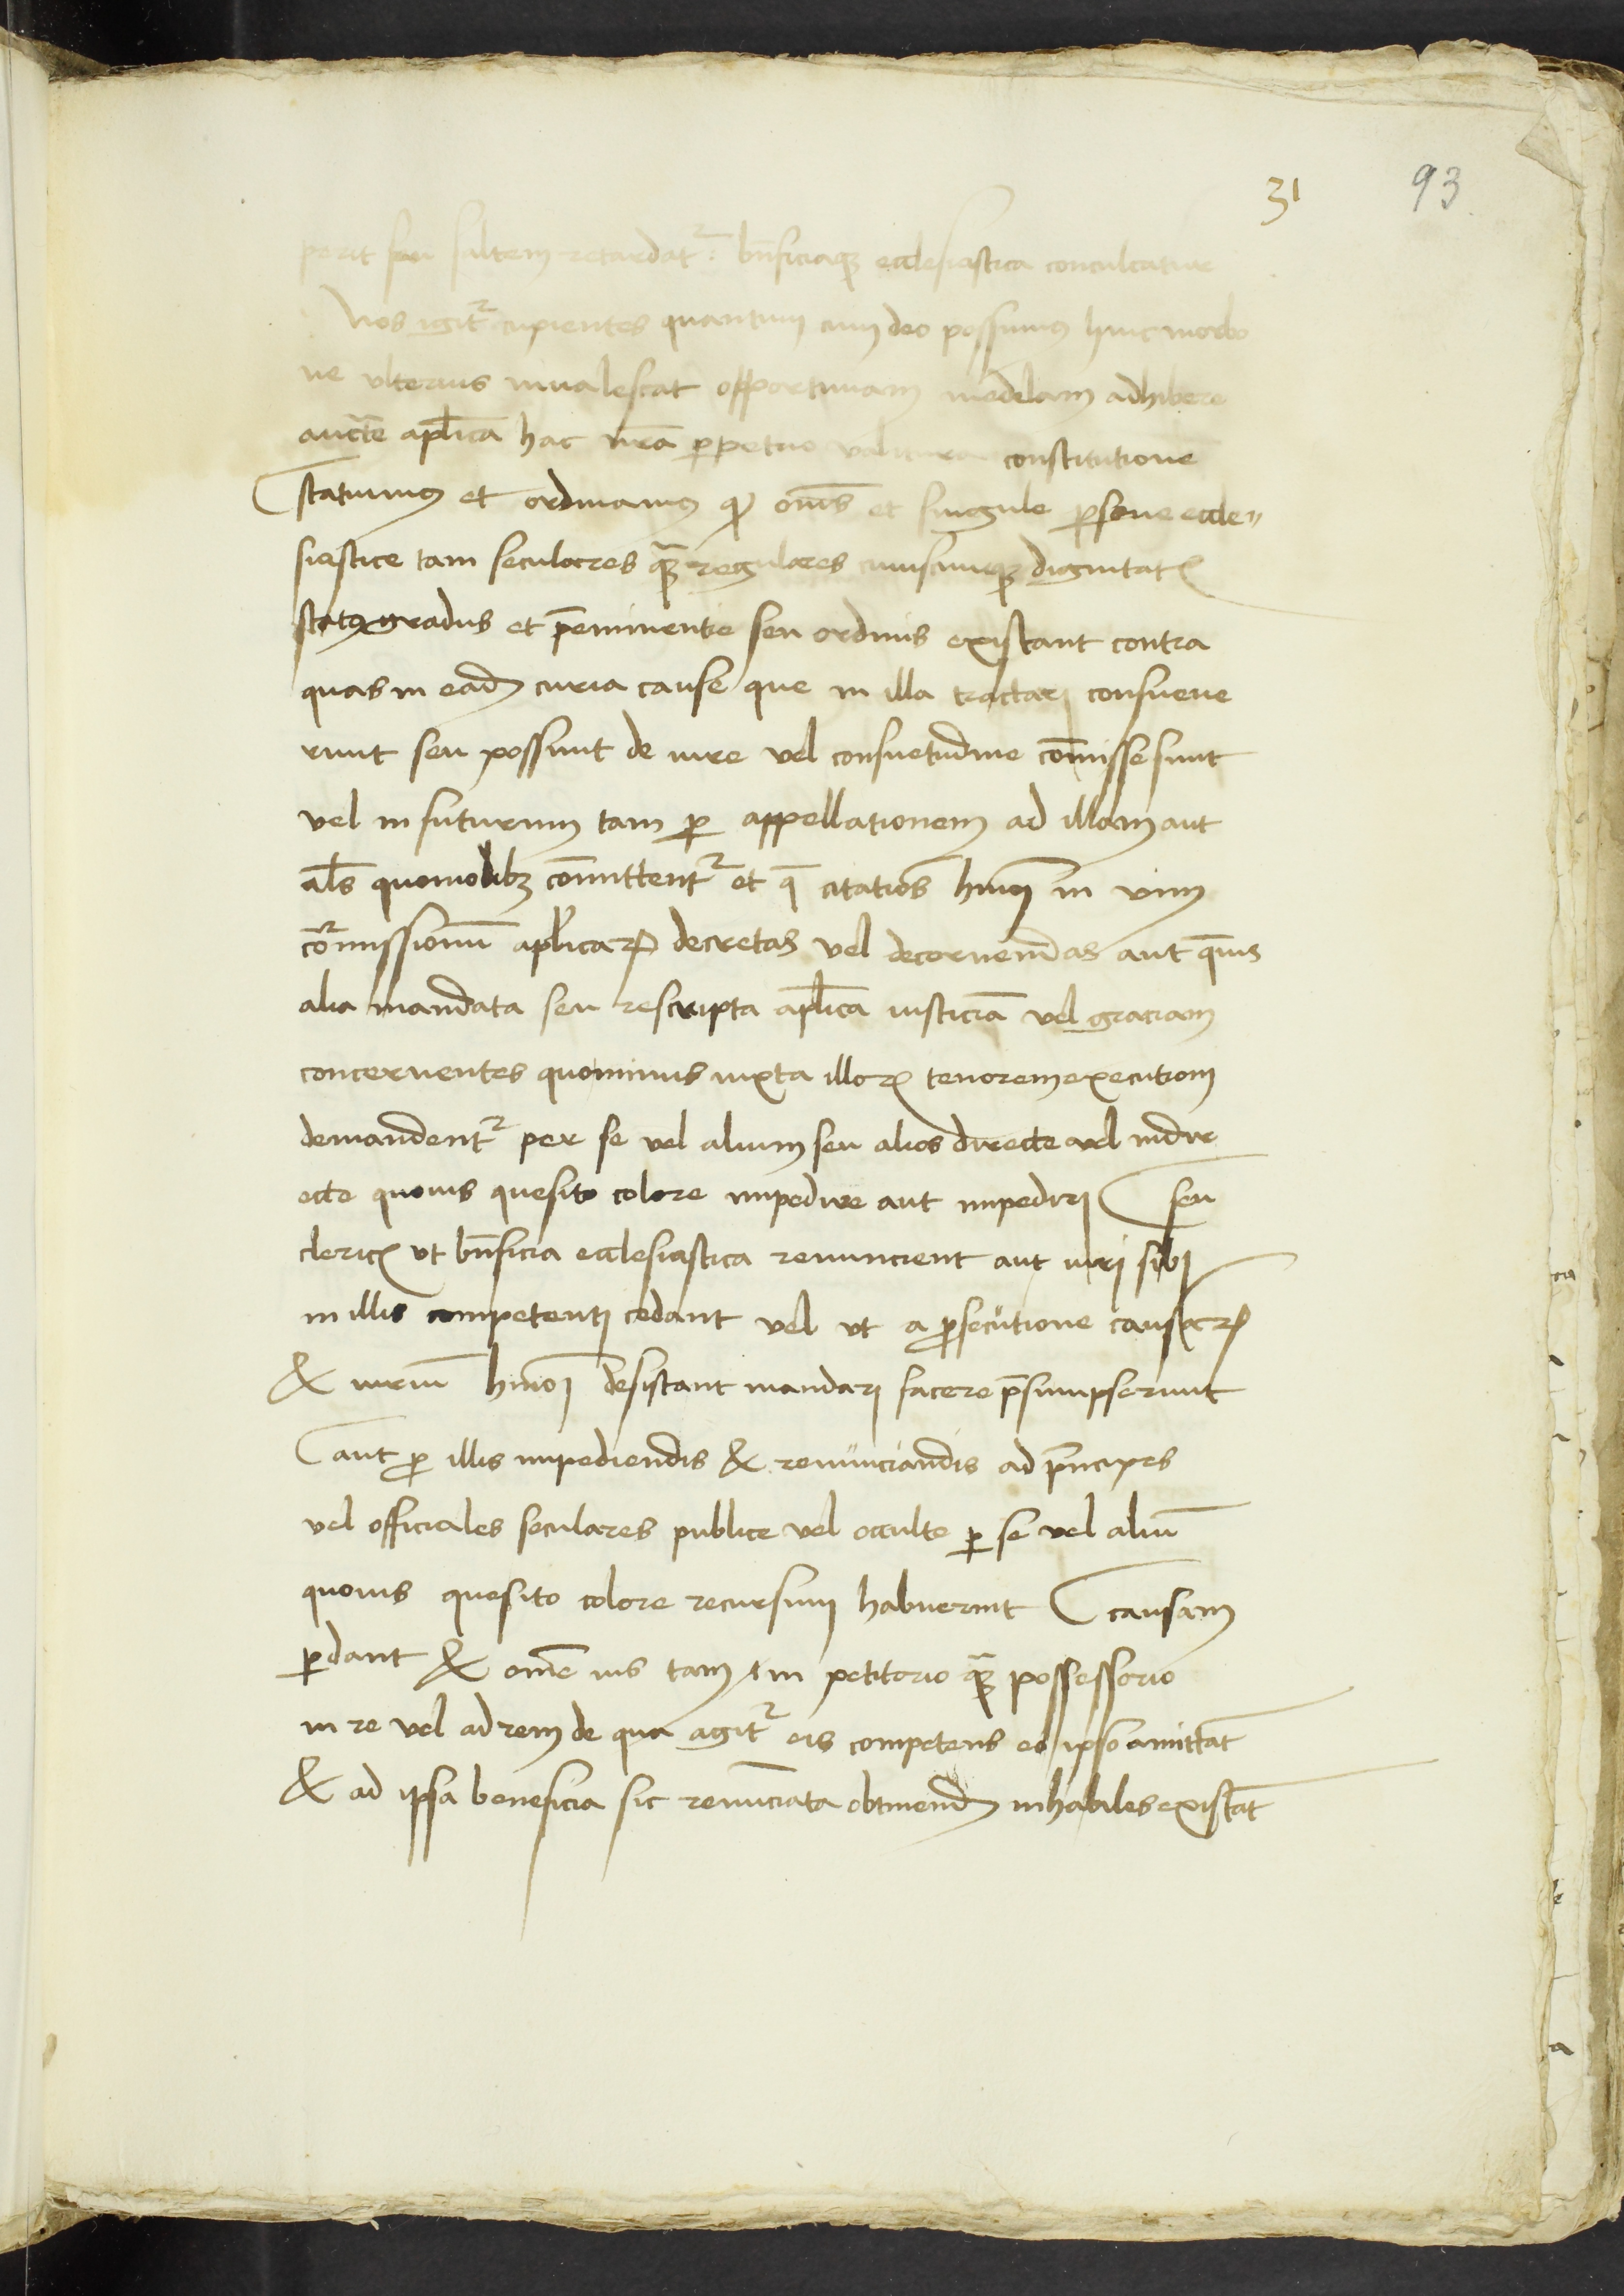 31 93
perit seu saltem retardat᷑. bn̄ficiaq₃ ecclesiastica conculcatur
Nos igit᷑ cupientes quantum cum deo possumꝰ huic morbo
ne vlterius inualescat opportunam medelam adhibere
auct̄e aplīca hac nr̄a ꝑpetuo valitura constitutione
Statuimꝰ et ordinamꝰ ꝙ om̄s et singule ꝑsone eccle„
siastice tam seculares qᷓ₃ regulares cuiuscunq₃ dignitatꝭ
statꝰ gradus et p̄eminentie seu ordinis existant contra
quas in ead₃ curia cause que in illa tractari consueue
runt seu possunt de iure vel consuetudine com̄isse sunt
vel in futurum tam ꝑ appellationem ad illam aut
al̄s quomodolib₃ com̄ittent᷑ et q̄ citatiōs hmōi in vim
com̄issionū aplīcaꝝ decretas vel decernendas aut q̄uis
alia mandata seu rescripta aplīca iusticiā vel graciam
concernentes quominus iuxta illoꝝ tenorem executiom
demandent᷑ per se vel alium seu alios directe vel indir
ecte quouis quesito colore impedire aut impediri seu
clericꝭ vt bn̄ficia ecclesiastica renuncient aut iuri sibi
in illis competenti cedant vel vt a ꝓsecutione causaꝝ
& iuriū hmōi desistant mandari facere p̄sumpserunt
aut ꝓ illis impediendis & renunciandis ad p̄ncipes
vel officiales seculares publice vel occulte ꝑ se vel aliū
quouis quesito colore recursum habuerint causam
ꝑdant & om̄e ius tam in petitorio qᷓ₃ possessorio
in re vel ad rem de qua agit᷑ eis competens eo ipso amittāt
& ad ipsa beneficia sic renunciata obtinend₃ inhabiles existāt